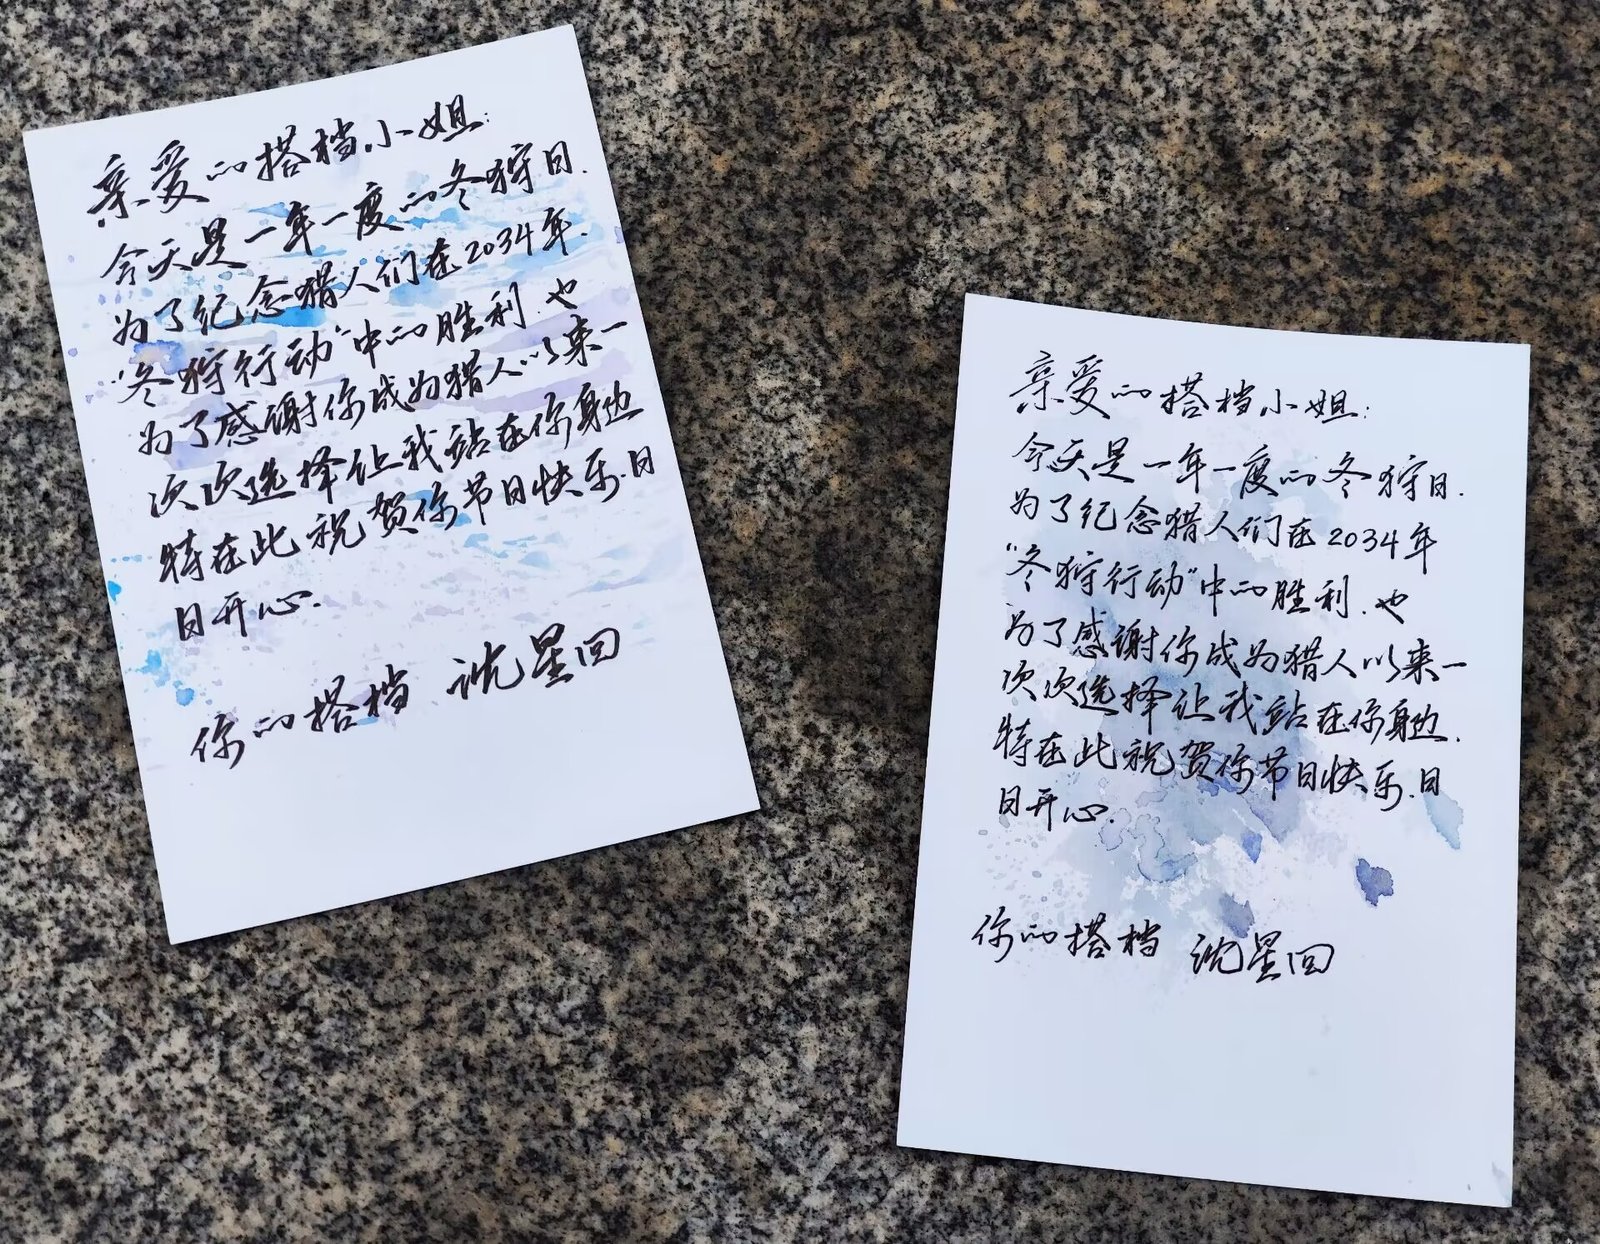 亲爱的搭档小姐:
今天是一年一度的冬狩日.
为了纪念猎人们在2034年.
“冬狩行动”中的胜利.也
为了感谢你成为猎人以来一
次次选择让我站在你身边
特在此祝贺你节日快乐.日
日开心.
你的搭档 沈星回
亲爱的搭档小姐:
今天是一年一度的冬狩日.
为了纪念猎人们在2034年
“冬狩行动”中的胜利.也
为了感谢你成为猎人以来一
次次选择让我站在你身边.
特在此祝贺你节日快乐.日
日开心.
你的搭档 沈星回